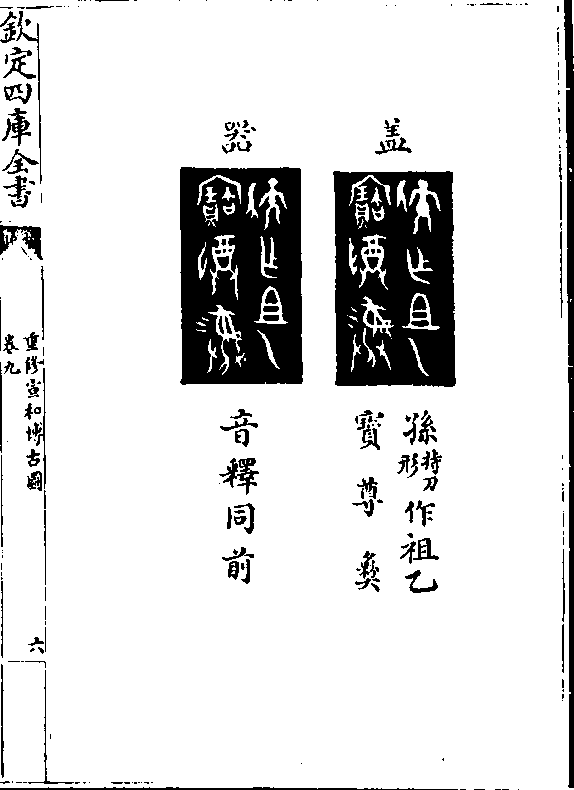 盖
孫持刀形作祖乙
寶尊彝
器
音釋同前
欽定四庫全書
重修宣和博古圖
卷九
六